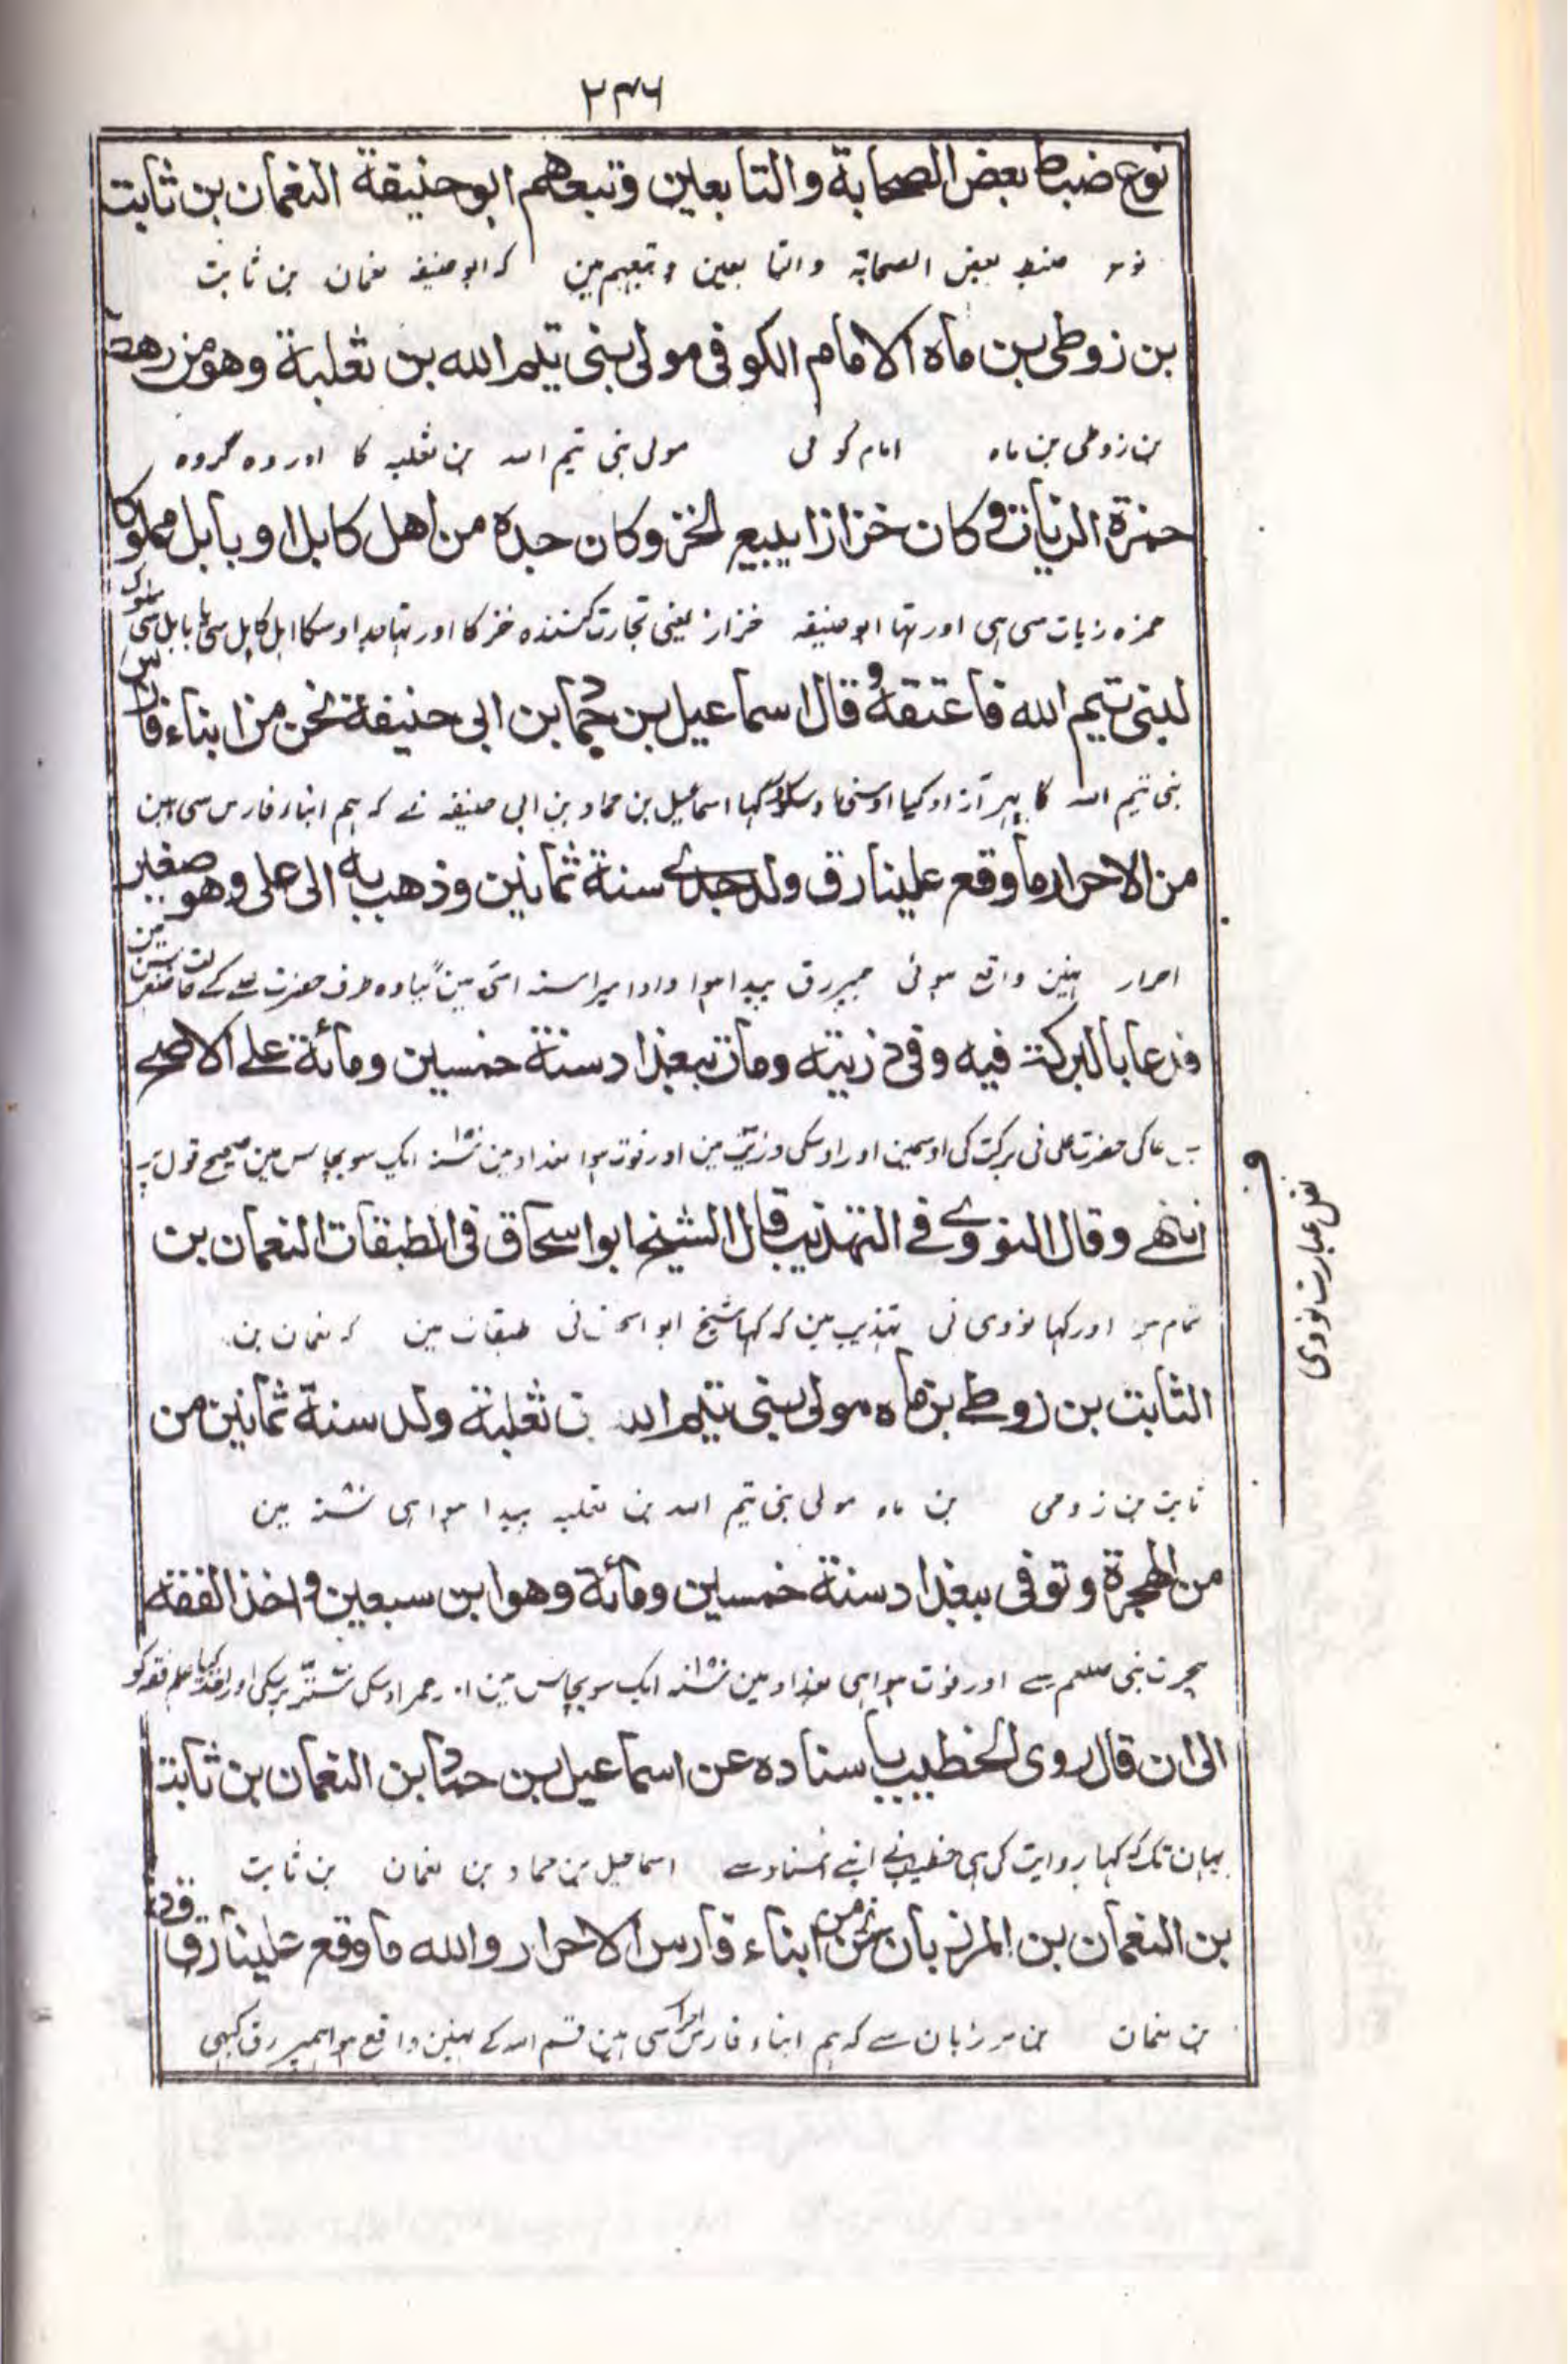 ۲۳۶
نوع ضباط بعض الصحابة والتابعين وتبعهم ابو حنيفة النعمان بن ثابت
ضبط بعض الصحابۃ والتابعین وتبعہم مین کہ ابو حنیفہ نعمان بن ثابت
بن زوطى بن ماه الامام الكوفى مولى بنى تيم الله بن ثعلبة وهو من رهط
بن زوطی بن ماہ امام کوفی مولی بنی تیم اللہ بن ثعلبہ کا اور وہ گروہ
حمزة الزيات وكان خزازا يبيع الخز وكان جده من اهل كابل او بابل مملوكا
حمزہ زیات سی ہی اور تہا ابو حنیفہ خزاز یعنی تجارت کنندہ خز کا اور تہا جد اوسکا اہل کابل سی یا بابل سی مملوک
لبنى تيم الله فاعتقه وقال اسماعيل بن حماد بن ابى حنيفة نحن من ابناء فارس
بنی تیم اللہ کا پہر آزاد کیا اوسنی اوسکو کہا اسماعیل بن حماد بن ابی حنیفہ نے کہ ہم ابناء فارس سی ہین
من الاحرار ما وقع علينا رق ولد جدے سنة ثمانين وذهب به الى على وهو صغير
احرار نہین واقع ہوئی ہمپر رق پیدا ہوا دادا میرا سنہ اسّی مین گیا وہ طرف حضرت علے کے حالت صغر سن مین
فدعا بالبركة فيه وفى ذريته ومات ببغداد سنة خمسين ومائة علے الاصح
دعا کی حضرت علی نی برکت کی اوسمین اور اوسکی ذریّت مین اور فوت ہوا بغداد مین سنہ ایک سو پچاس مین صحیح قول پر
انتهے وقال النووے فے التهذيب قال الشيخ ابو اسحاق فى الطبقات النعمان بن
تمام ہوا اور کہا نووی نی تہذیب مین کہ کہا شیخ ابو اسحٰق نی طبقات مین کہ نعمان بن
الثابت بن زوطے بن ماه مولى بنى تيم الله بن ثعلبة ولد سنة ثمانين من
ثابت بن زوطی بن ماہ مولی بنی تیم اللہ بن ثعلبہ پیدا ہوا ہی سنہ مین
من الهجرة وتوفى ببغداد سنة خمسين ومائة وهو ابن سبعين واخذ الفقه
ہجرت نبی صلعم سے اور فوت ہوا ہی بغداد مین سنہ ایک سو پچاس مین اور عمر اوسکی ستر برسکی اور اخذ کیا علم فقہ کو
الى ان قال روى الخطيب باسناده عن اسماعيل بن حماد بن النعمان بن ثابت
یہان تک کہ کہا روایت کی ہی خطیب نے اپنے اسناد سے اسماعیل بن حماد بن نعمان بن ثابت
بن النعمان بن المرزبان نحن من ابناء فارس الاحرار والله ما وقع علينا رق قط
بن نعمان بن مرزبان سے کہ ہم ابناء فارس احرار سی ہین قسم اللہ کے نہین واقع ہوا ہمپر رق کبہی
نقل عبارت نووی